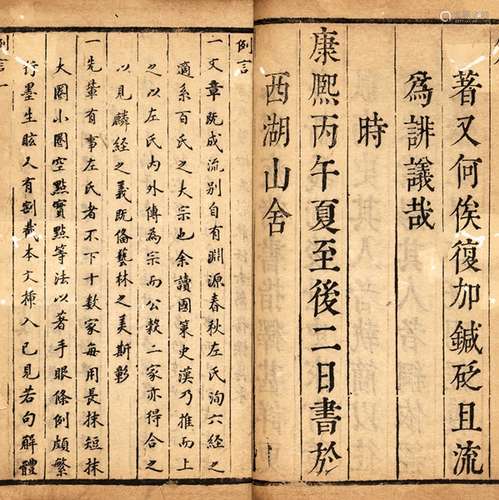 著又何俟復加鍼砭且流
為誹議哉
時
康熙丙午夏至後二日書於
西湖山舍
例言
一文章既成流別自有淵源春秋左氏洵六經之
適系百氏之大宗也余讀國策史漢乃推而上
之以左氏內外傳為宗而公穀二家亦得合之
以見麟經之義既俻藝林之美斯彰
一先輩有事左氏者不下十數家每用長抹短抹
大圈小圈空點實點等法以著手眼條例頗繁
行墨生眩又有割裁本文揀入已見若句解體
例言一